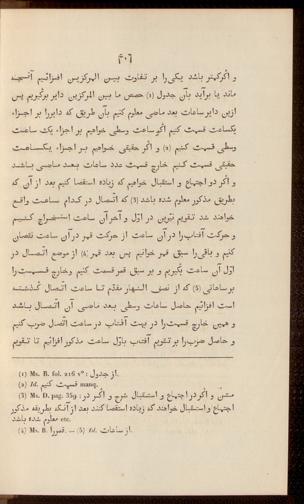 ۴۰۶
و اگر کمتر باشد یکی را بر تفاوت بین المرکزین افزائیم آنچه
ماند یا برآید بآن جدول (1) حصص ما بین المرکزین دایر برگیریم پس
ازین دایر ساعات بعد ماضی معلوم کنیم بآن طریق که دایر را بر اجزاء
یکساعت قسمت کنیم اگر ساعت وسطی خواهیم بر اجزاء یک ساعت
وسطی قسمت کنیم (2) و اگر حقیقی خواهیم بر اجزاء یکساعت
حقیقی قسمت کنیم خارج قسمت عدد ساعات بعد ماضی باشد
و اگر در اجتماع و استقبال خواهیم که زیاده استقصا کنیم بعد از آن که
بطریق مذکور معلوم شده باشد (3) که اتصال در کدام ساعت واقع
خواهد شد تقویم نیرین در اول و آخر آن ساعت استخراج کنیم
و حرکت آفتاب را در آن ساعت از حرکت قمر در آن ساعت نقصان
کنیم و باقی را سبق قمر خوانیم پس بعد قمر (4) از موضع اتصال در
اول آن ساعت بگیریم و بر سبق قمر قسمت کنیم و خارج قسمت را
بر ساعاتی (5) که از نصف النهار مقدم تا ساعت اتصال گذشته
است افزائیم حاصل ساعات وسطی بعد ماضی آن اتصال باشد
و همین خارج قسمت را در بهت آفتاب در ساعت اتصال ضرب کنیم
و حاصل ضرب را بر تقویم آفتاب باول ساعت مذکور افزائیم تا تقویم
(1) Ms. B. fol. 216 v° : از جدول.
(2) Id. قسمت کنیم manq.
(3) Ms. D. pag. 359 : متن و اگر در اجتماع و استقبال شرح و اگر در
اجتماع و استقبال خواهند که زیاده استقصا کنند بعد از آنکه بطریقه مذکور
معلوم شده باشد etc.
(4) Ms. B. قمر را. — (5) Id. از ساعات.